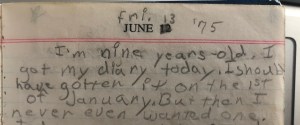 fri. 13 '75
JUNE 12
I'm nine years-old. I
got my diary today. I should
have gotten it on the 1st
of January. But then I
never even wanted one.